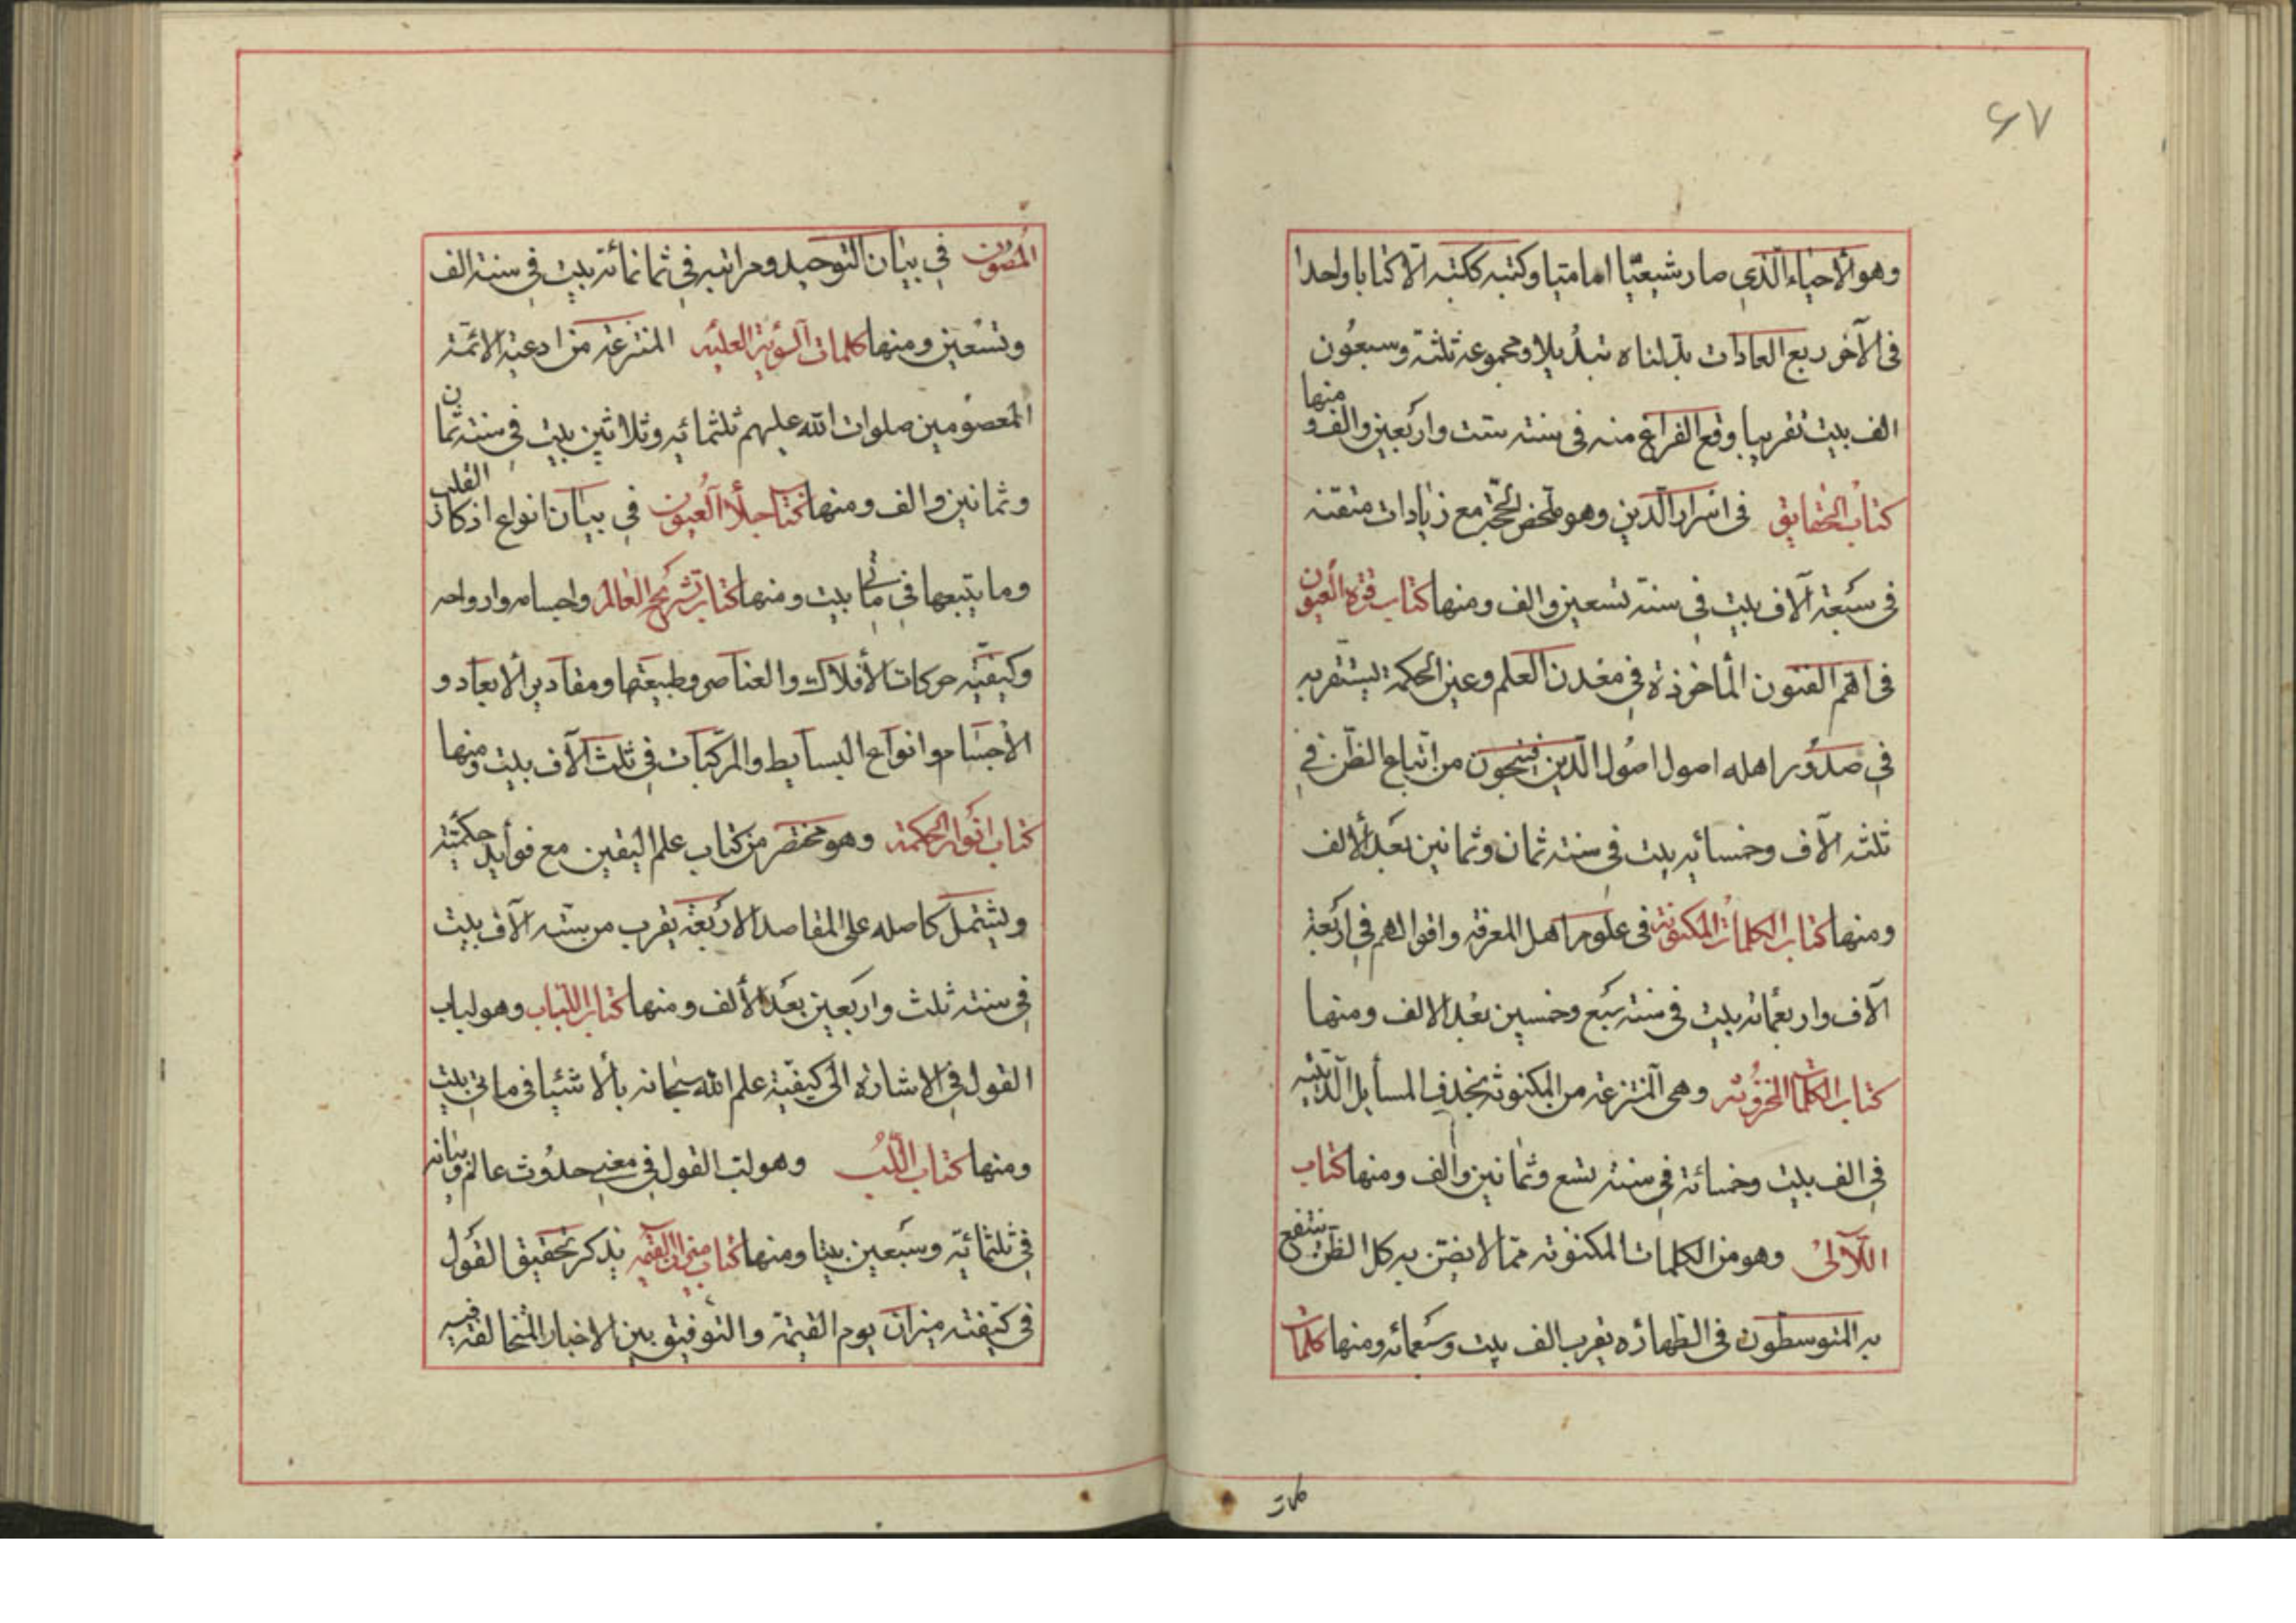 ٦٧
وهو الأحياء الذي صار شيعيّا اماميا وكتبه ككتبه الا كتابا واحدا
فى الآخر ربع العادات بدلناه تبديلا ومجموعه ثلثة وسبعون
الف بيت تقريبا وقع الفراغ منه فى سنته ستت واربعين والف و منها
كتاب الحقايق فى اسرار الدين وهو ملخص المحجة مع زيادات متقنه
فى سبعة آلاف بيت في سنته تسعين والف ومنها كتاب قرة العيون
فى اهم الفنون المأخوذة في معدن العلم وعين الحكمة يستقر به
في صدور اهله اصول اصول الدين فينجون من اتباع الظن في
ثلثه الآف وخمسائه بيت فى سنته ثمان وثمانين بعد الالف
ومنها كتاب الكلمات المكنونة فى علوم اهل المعرفة واقوالهم في اربعة
الآف واربعمائه بيت فى سنته سبع وخمسين بعد الالف ومنها
كتاب الكلمات المخزونه وهى المنتزعه من المكنونه بحذف المسأيل
في الف بيت وخمسائة في سنته تسع وثمانين والف ومنها كتاب
اللآلى وهو من الكلمات المكنونه ممّا لا يضنّ به كل الظن ينتفع
به المتوسطون فى الطهاره يقرب الف بيت وسبعمائه ومنها كلمات
المصون في بيان التوحيد ومراتبه في ثمانمائة بيت في سنته الف
وتسعين ومنها كلمات السرية العليه المنتزعه من ادعية الائمّة
المعصومين صلوات الله عليهم ثلثمائيه وثلاثين بيت في سنته ثمان
وثمانين والف ومنها كتا جلأ العيون في بيان انواع اذكار القلب
وما يتبعها في مأتي بيت ومنها كتاب تشريح العالم واجسامه وارواحه
وكيفيّه حركات الأفلاك والعناصر وطبيعتها ومقادير الابعاد و
الاجسام وانواع البسايط والمركبات في ثلث الآف بيت ومنها
كتاب انوار الحكمة وهو مختصر من كتاب علم اليقين مع فوأيد حكميّته
ويشتمل كاصله على المقاصد الاربعة يقرب من ستّه الآف بيت
في سنته ثلث واربعين بعد الألف ومنها كتاب اللباب وهو لباب
القول في الاشارة الى كيفيّة علم الله سبحانه بألاشيا فى مأتي بيت
ومنها كتاب اللب وهو لب القول في معنى حدوث عالم وبيانه
في ثلثمائيه وسبعين بيتا ومنها كتاب ميزان القيمه يذكر تحقيق القول
فى كيفيته ميزان يوم القيمة والتوفيق بين الاخبار المتخالفة فيه